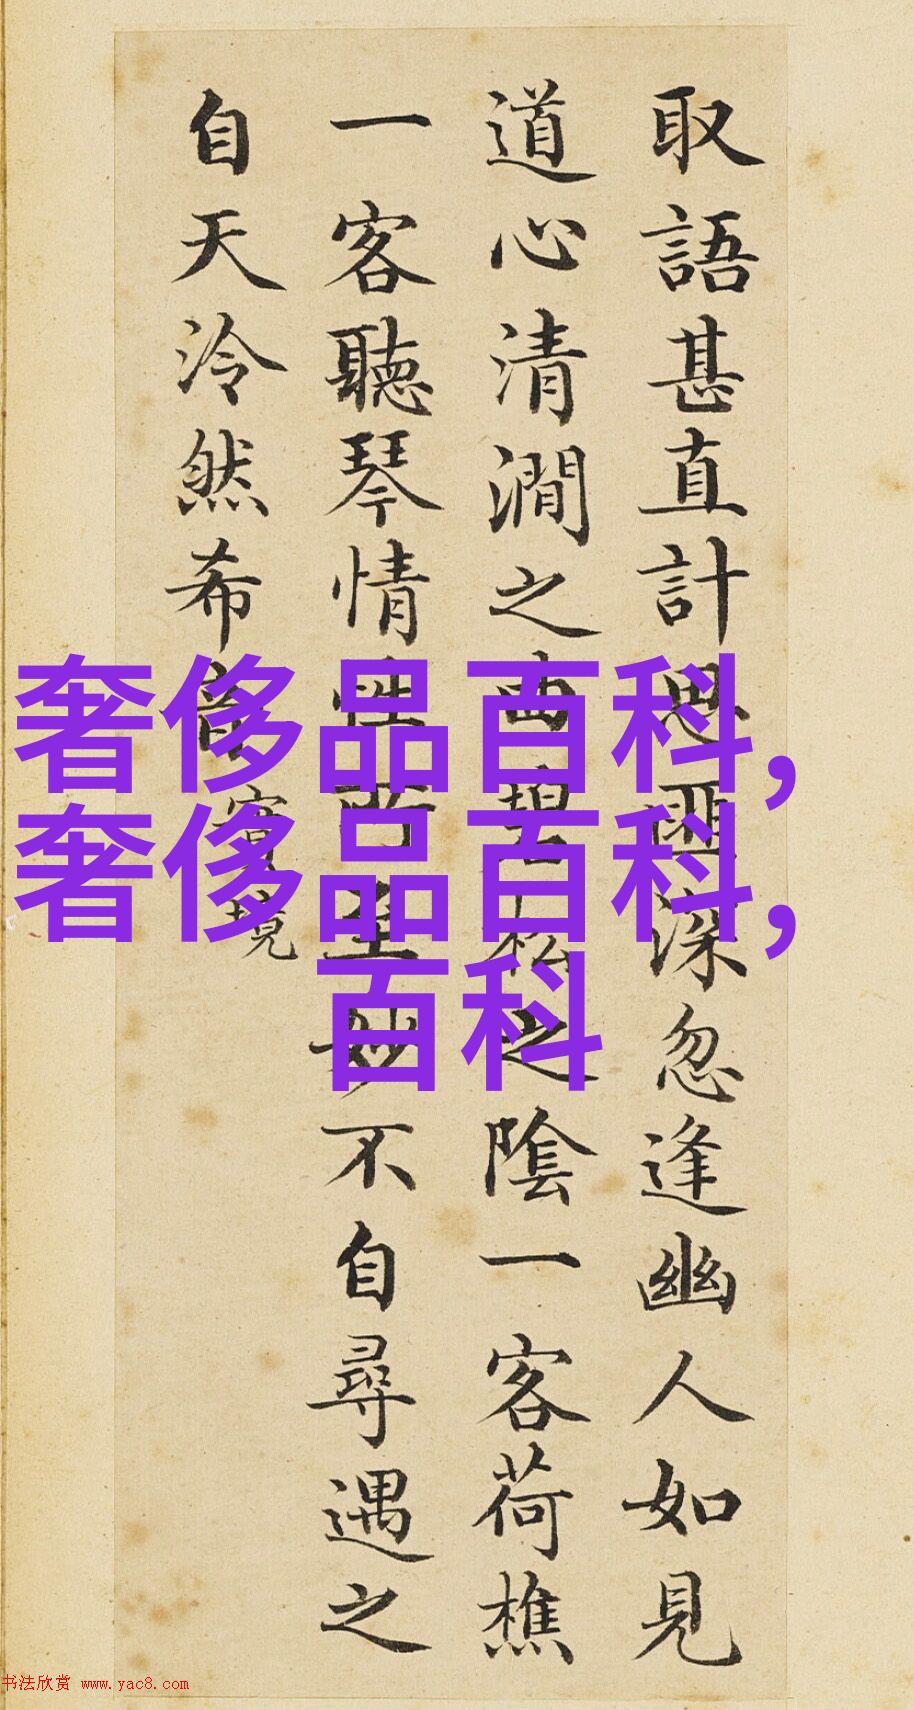 取語甚直計思匪深忽逢幽人如見
道心清澗之曲碧松之陰一客荷樵
一客聽琴情性所至妙不自尋遇之
自天泠然希音
實境
奢侈品百科,
奢侈品百科,
百科
书法欣赏 www.yac8.com